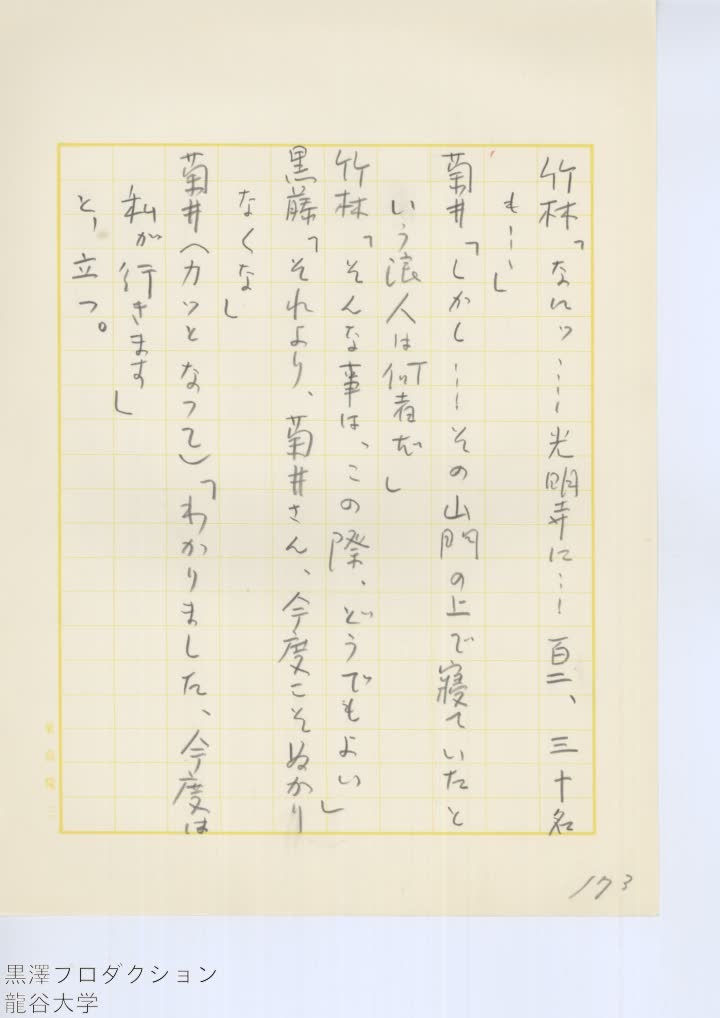 竹林「なにッ……光明寺に……百二、三十名
も……」
菊井「しかし……その山門の上で寝ていたと
いう浪人は何者だ」
竹林「そんな事は、この際、どうでもよい」
黒藤「それより、菊井さん、今度こそぬかり
なくな」
菊井（カッとなって）「わかりました、今度は
私が行きます」
と、立つ。
173
黒澤プロダクション
龍谷大学